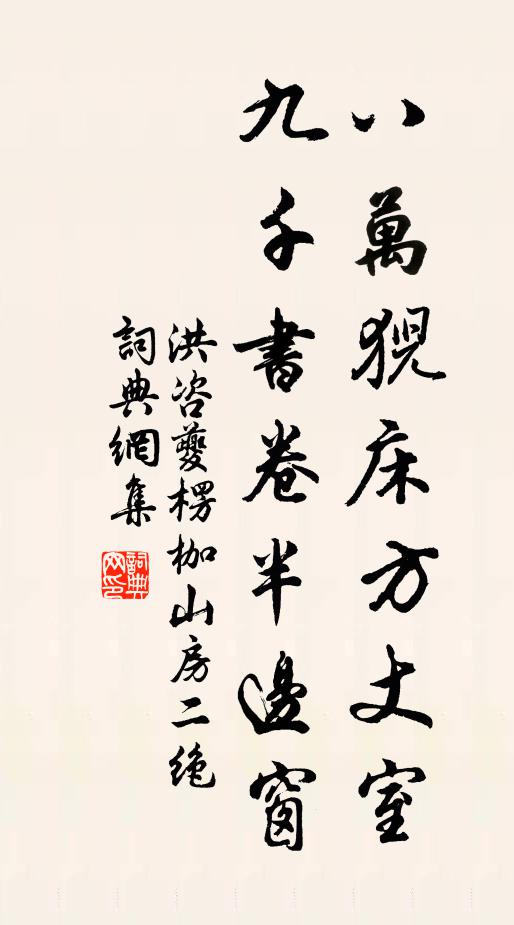 八萬猊床方丈室
九千書卷半邊窗
洪咨夔楞枷山房二絶
詞典網集
詞典網印